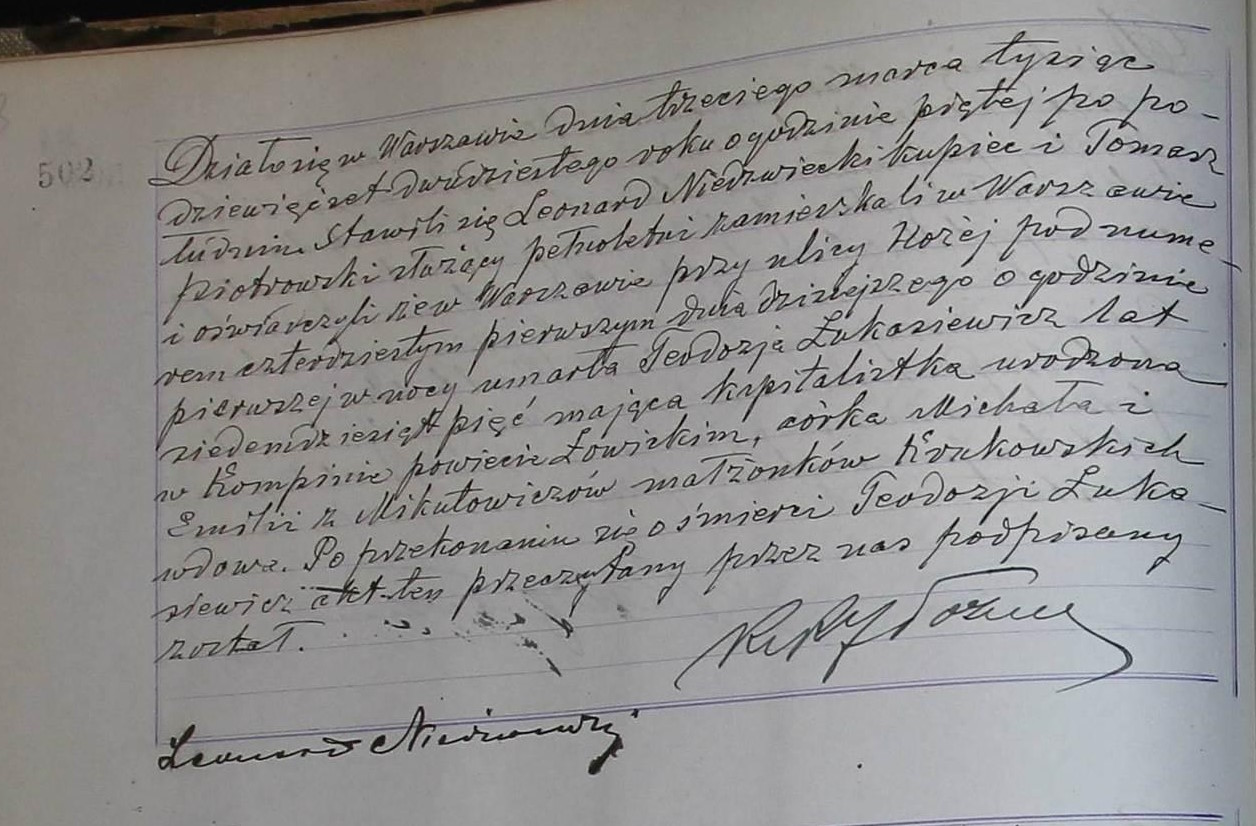 502
Działo się w Warszawie dnia trzeciego marca tysiąc
dziewięćset dwudziestego roku o godzinie piątej po po-
łudniu. Stawili się Leonard Niedzwiecki kupiec i Tomasz
Piotrowski służący pełnoletni zamieszkali w Warszawie
i oświadczyli że w Warszawie przy ulicy Hożej pod nume-
rem czterdziestym pierwszym dnia dzisiejszego o godzinie
pierwszej w nocy umarła Teodozja Łukasiewicz lat
siedemdziesiąt pięć mająca kapitalistka urodzona
w Kompinie powiecie Łowickim, córka Michała i
Emilii z Mikułowiczów małżonków Krukowskich
wdowa. Po przekonaniu się o śmierci Teodozji Łuka-
siewicz akt ten przeczytany przez nas podpisany
został.
Leonard Niedzwiecki